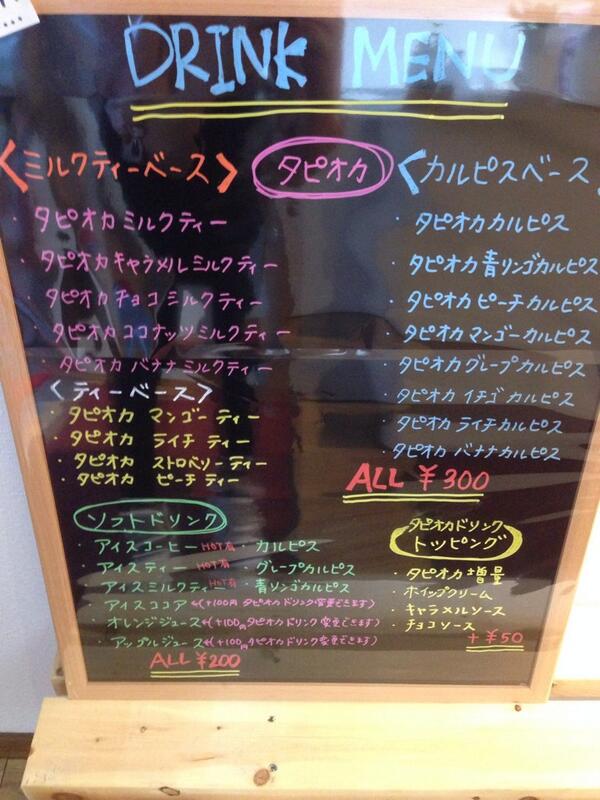 DRINK MENU
<ミルクティーベース>
タピオカ
<カルピスベース
・タピオカミルクティー
・タピオカキャラメルミルクティー
・タピオカチョコミルクティー
・タピオカココナッツミルクティー
・タピオカバナナミルクティー
<ティーベース>
・タピオカ マンゴー ティー
・タピオカ ライチ ティー
・タピオカ ストロベリー ティー
・タピオカ ピーチ ティー
・タピオカカルピス
・タピオカ青リンゴカルピス
・タピオカピーチカルピス
・タピオカマンゴーカルピス
・タピオカグレープカルピス
・タピオカイチゴカルピス
・タピオカライチカルピス
・タピオカバナナカルピス
ALL ¥300
ソフトドリンク
・アイスコーヒー HOT有
・アイスティー HOT有
・アイスミルクティー HOT有
・アイスココア←(+100円タピオカドリンク変更できます)
・オレンジジュース←(+100円タピオカドリンク変更できます)
・アップルジュース←(+100円タピオカドリンク変更できます)
・カルピス
・グレープカルピス
・青リンゴカルピス
ALL ¥200
タピオカドリンク
トッピング
・タピオカ増量
・ホイップクリーム
・キャラメルソース
・チョコソース
+¥50